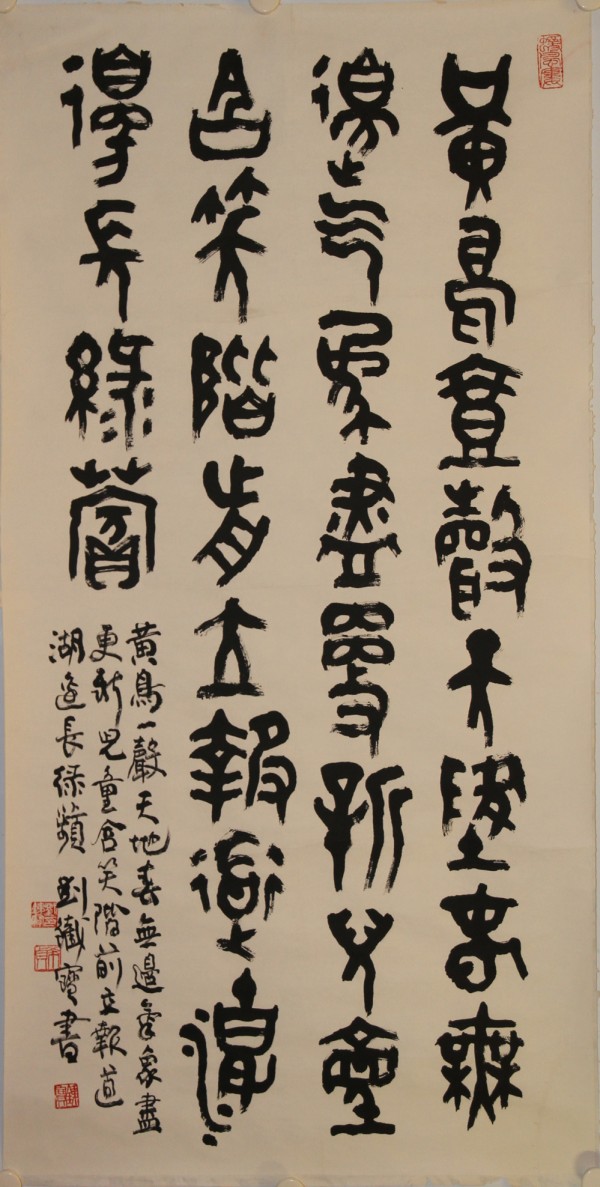 黃鳥壹聲天地春無
邊氣象盡更新兒童
含笑階前立報道湖
邊長綠蘋
黃鳥一聲天地春無邊氣象盡
更新兒童含笑階前立報道
湖邊長綠蘋 劉寶書